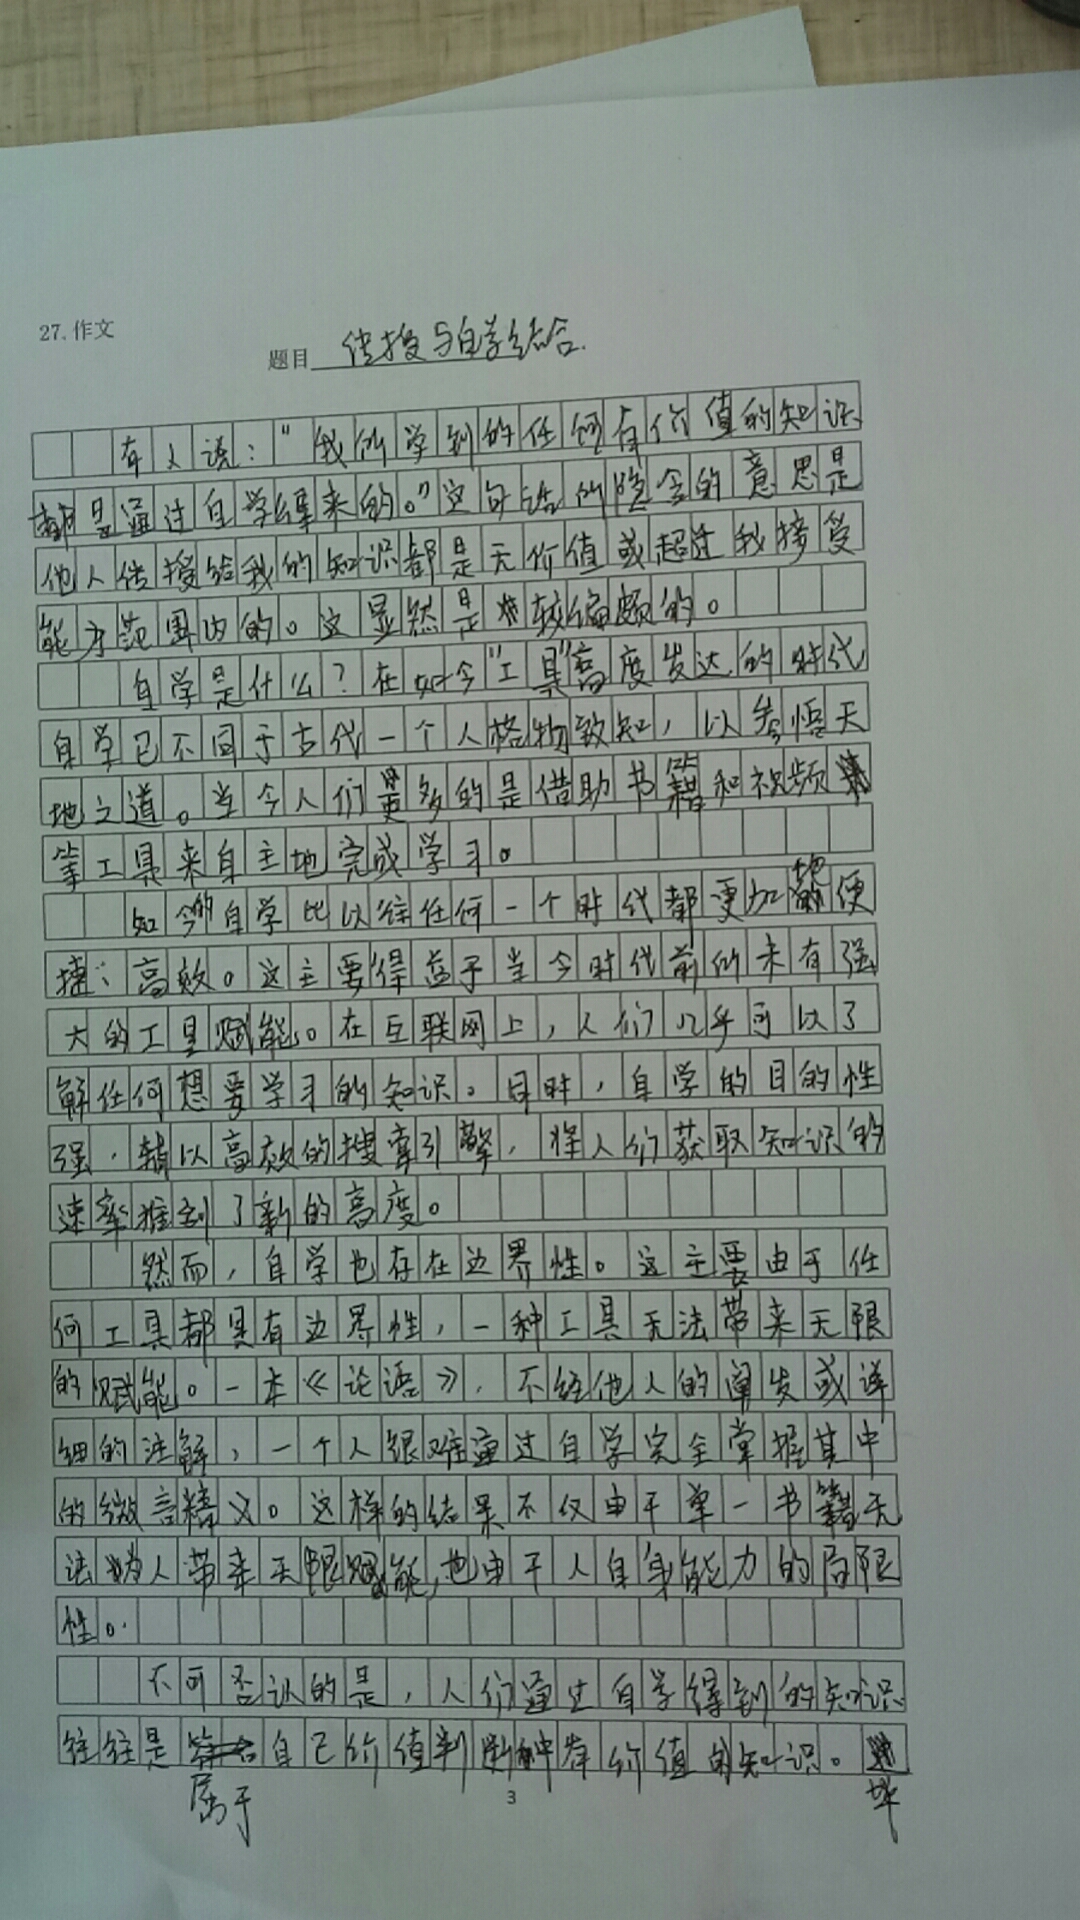 27.作文
题目 传授与自学结合.
有人说：“我所学到的任何有价值的知识
都是通过自学得来的。”这句话所隐含的意思是
他人传授给我的知识都是无价值或超过我接受
能力范围内的。这显然是较偏颇的。
自学是什么？在如今“工具”高度发达的时代
自学已不同于古代一个人格物致知，以参悟天
地之道。当今人们更多的是借助书籍和视频
等工具来自主地完成学习。
如今的自学比以往任何一个时代都更加地便
捷、高效。这主要得益于当今时代前所未有强
大的工具赋能。在互联网上，人们几乎可以了
解任何想要学习的知识。同时，自学的目的性
强，辅以高效的搜索引擎，将人们获取知识的
速率推到了新的高度。
然而，自学也存在边界性。这主要由于任
何工具都具有边界性，一种工具无法带来无限
的赋能。一本《论语》，不经他人的阐发或详
细的注解，一个人很难通过自学完全掌握其中
的微言精义。这样的结果不仅由于单一书籍无
法为人带来无限赋能，也由于人自身能力的局限
性。
不可否认的是，人们通过自学得到的知识
往往是属于自己价值判断中有价值的知识。
3